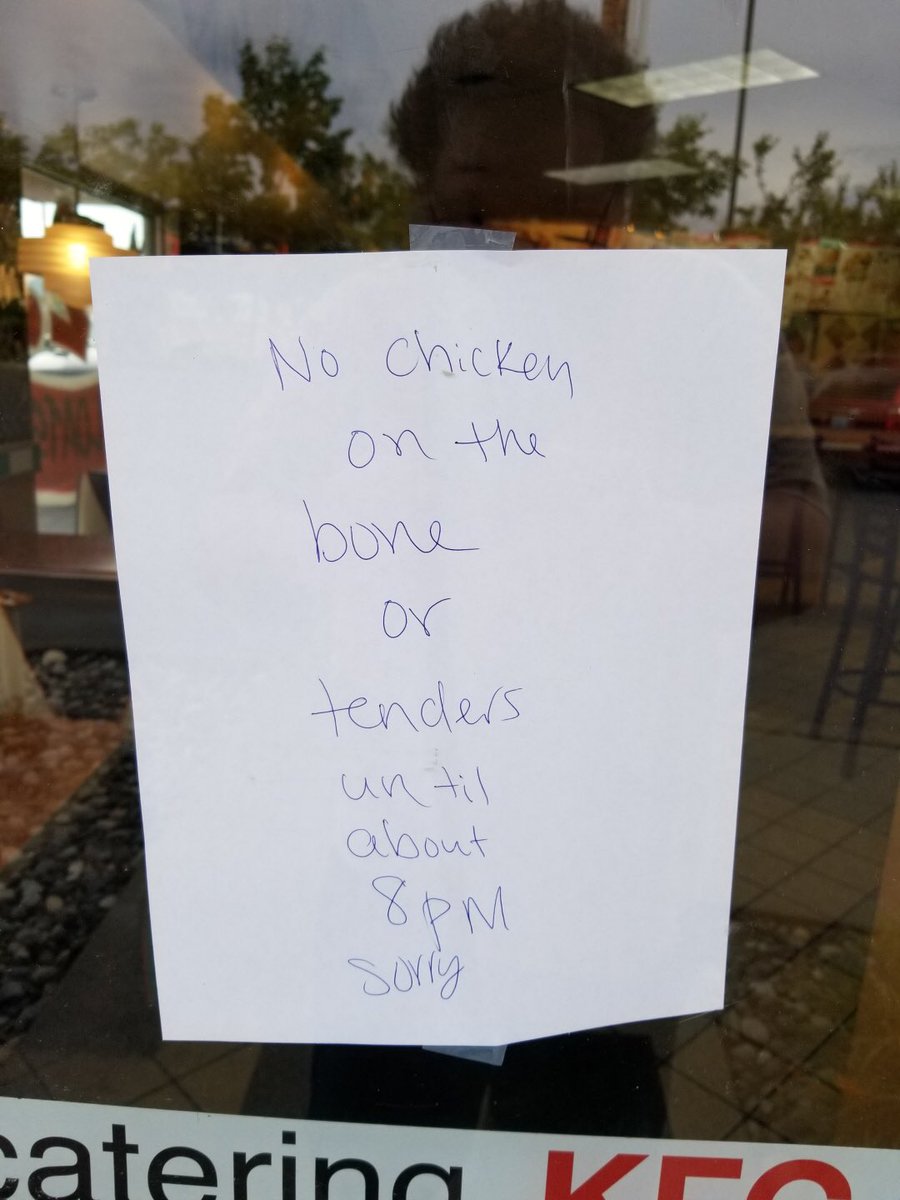 No Chicken
on the
bone
or
tenders
until
about
8pM
sorry
catering KFC